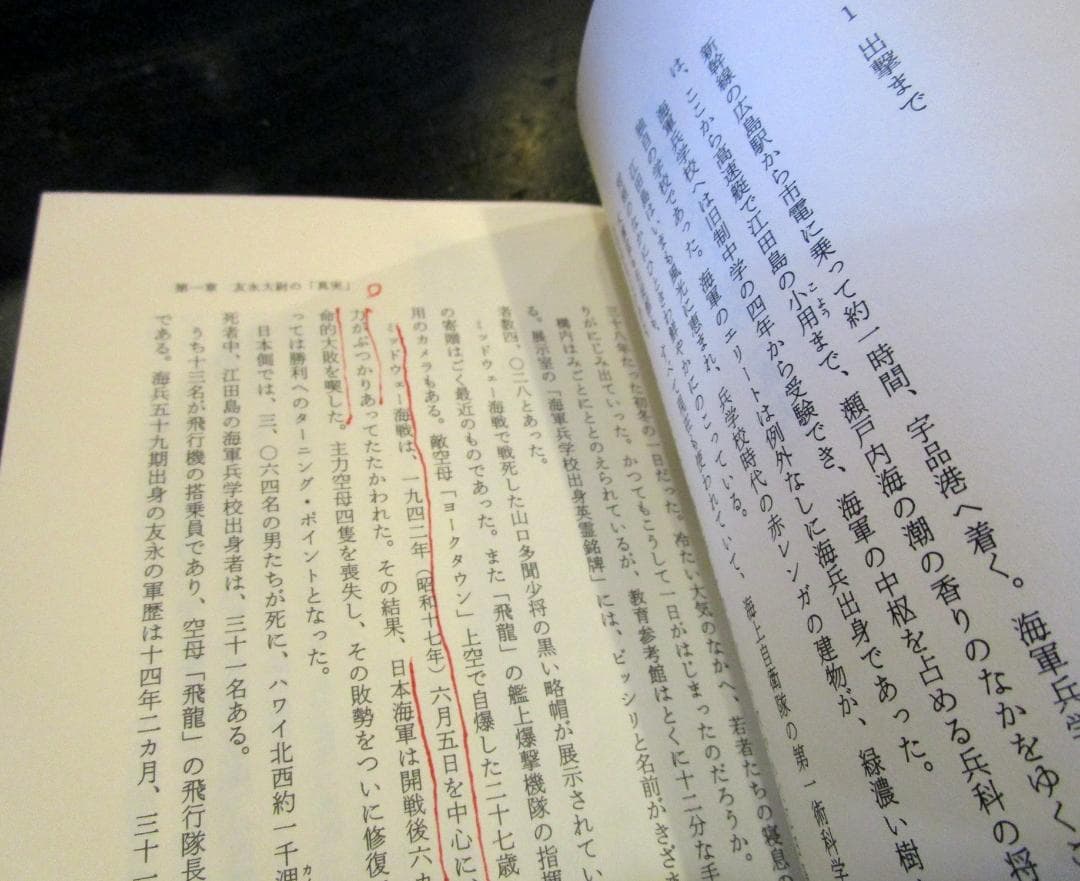 1 出撃まで
新幹線の広島駅から市電に乗って約一時間、宇品港へ着く。海軍兵学
は、ここから高速艇で江田島の小用まで、瀬戸内海の潮の香りのなかをゆく
こよう
海軍兵学校へは旧制中学の四年から受験でき、海軍の中枢を占める兵科の将
の学校であった。海軍のエリートは例外なしに海兵出身であった。
江田島はいまも風光に恵まれ、兵学校時代の赤レンガの建物が、緑濃い樹
鮮やかにのこっている。
使われていて、海上自衛隊の第一術科学
三十八年たった初冬の一日だった。冷たい大気のなかへ、若者たちの寝息の
りがにじみ出ていった。かつてもこうして一日がはじまったのだろうか。
構内はみごとにととのえられているが、教育参考館はとくに十二分な手
る。展示室の「海軍兵学校出身英霊銘牌」には、ビッシリと名前がきざ
者数四、〇二八とあった。
ミッドウェー海戦で戦死した山口多聞少将の黒い略帽が展示されてい
の寄贈はごく最近のものであった。また「飛龍」の艦上爆撃機隊の指揮
用のカメラもある。敵空母「ヨークタウン」上空で自爆した二十七歳
ミッドウェー海戦は、一九四二年（昭和十七年）六月五日を中心に、
力がぶつかりあってたたかわれた。その結果、日本海軍は開戦後六
命的大敗を喫した。主力空母四隻を喪失し、その敗勢をついに修復
っては勝利へのターニング・ポイントとなった。
日本側では、三、〇六四名の男たちが死に、ハワイ北西約一千
死者中、江田島の海軍兵学校出身者は、三十一名ある。
うち十三名が飛行機の搭乗員であり、空母「飛龍」の飛行隊長
である。海兵五十九期出身の友永の軍歴は十四年二カ月、三十一
第一章 友永大尉の「真実」